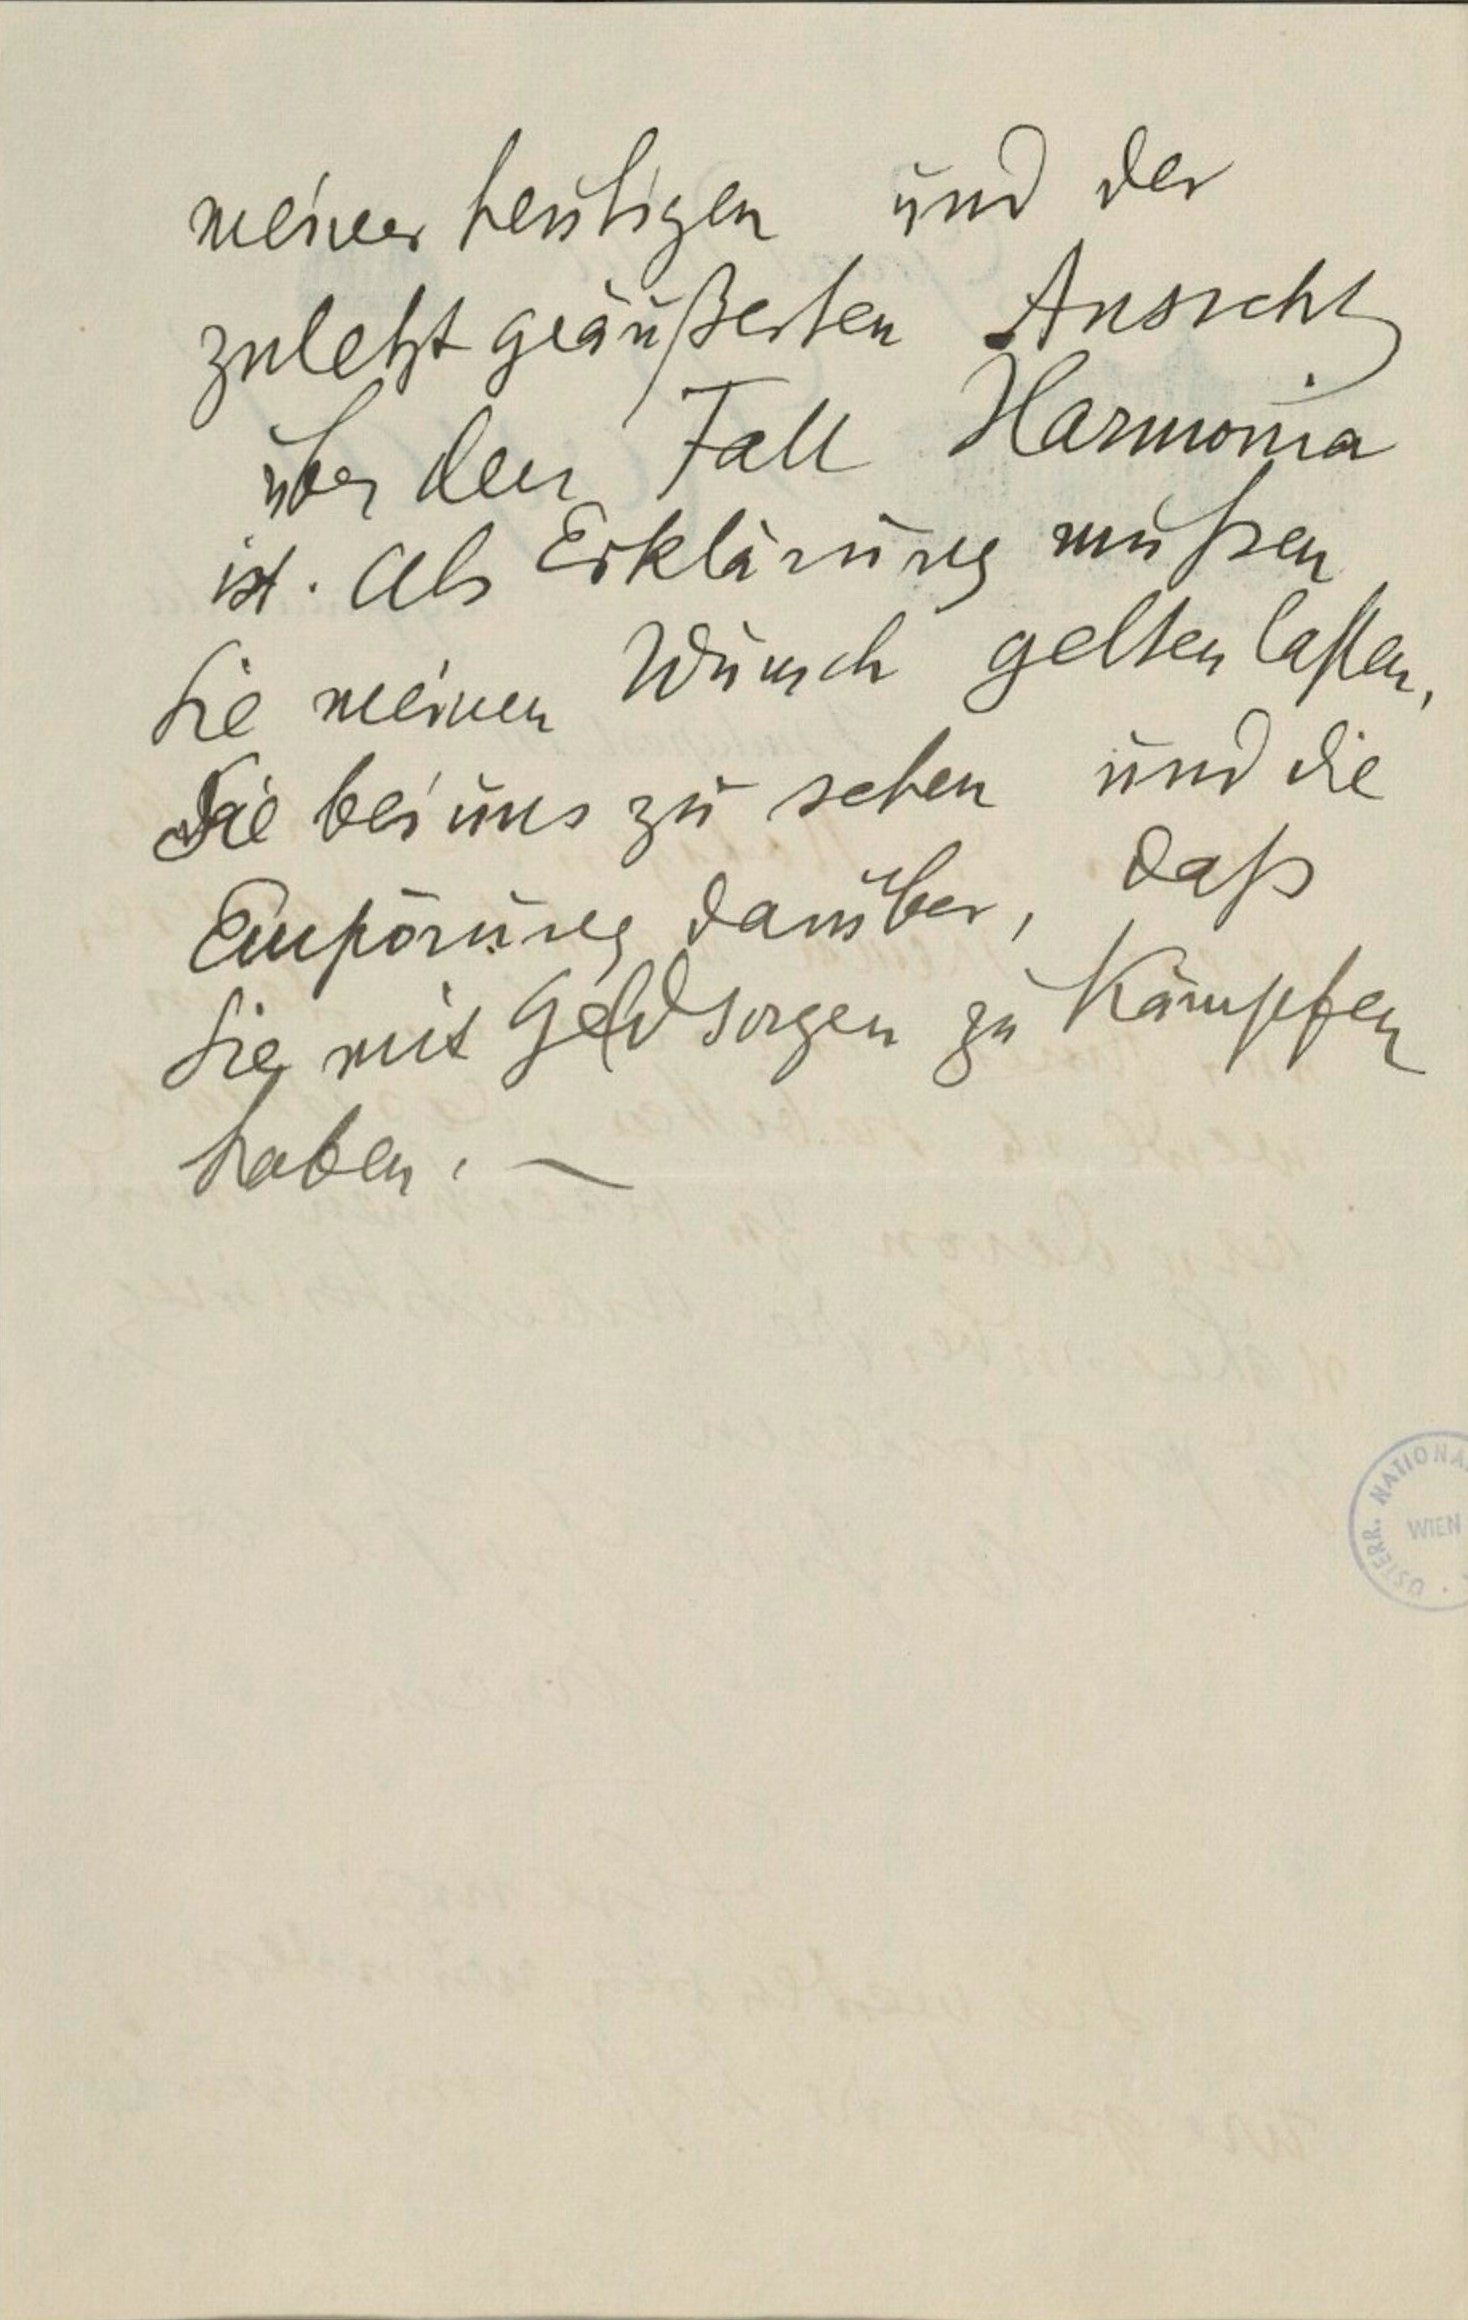 meiner heutigen und der
zuletzt geäußerten Ansicht
über den Fall Harmonia
ist. Als Erklärung mußen
Sie meinen Wunsch gelten laßen,
Sie bei uns zu sehen und die
Empörung darüber, daß
Sie mit Geldsorgen zu kämpfen
haben. —
ÖSTERR. NATIONA
WIEN